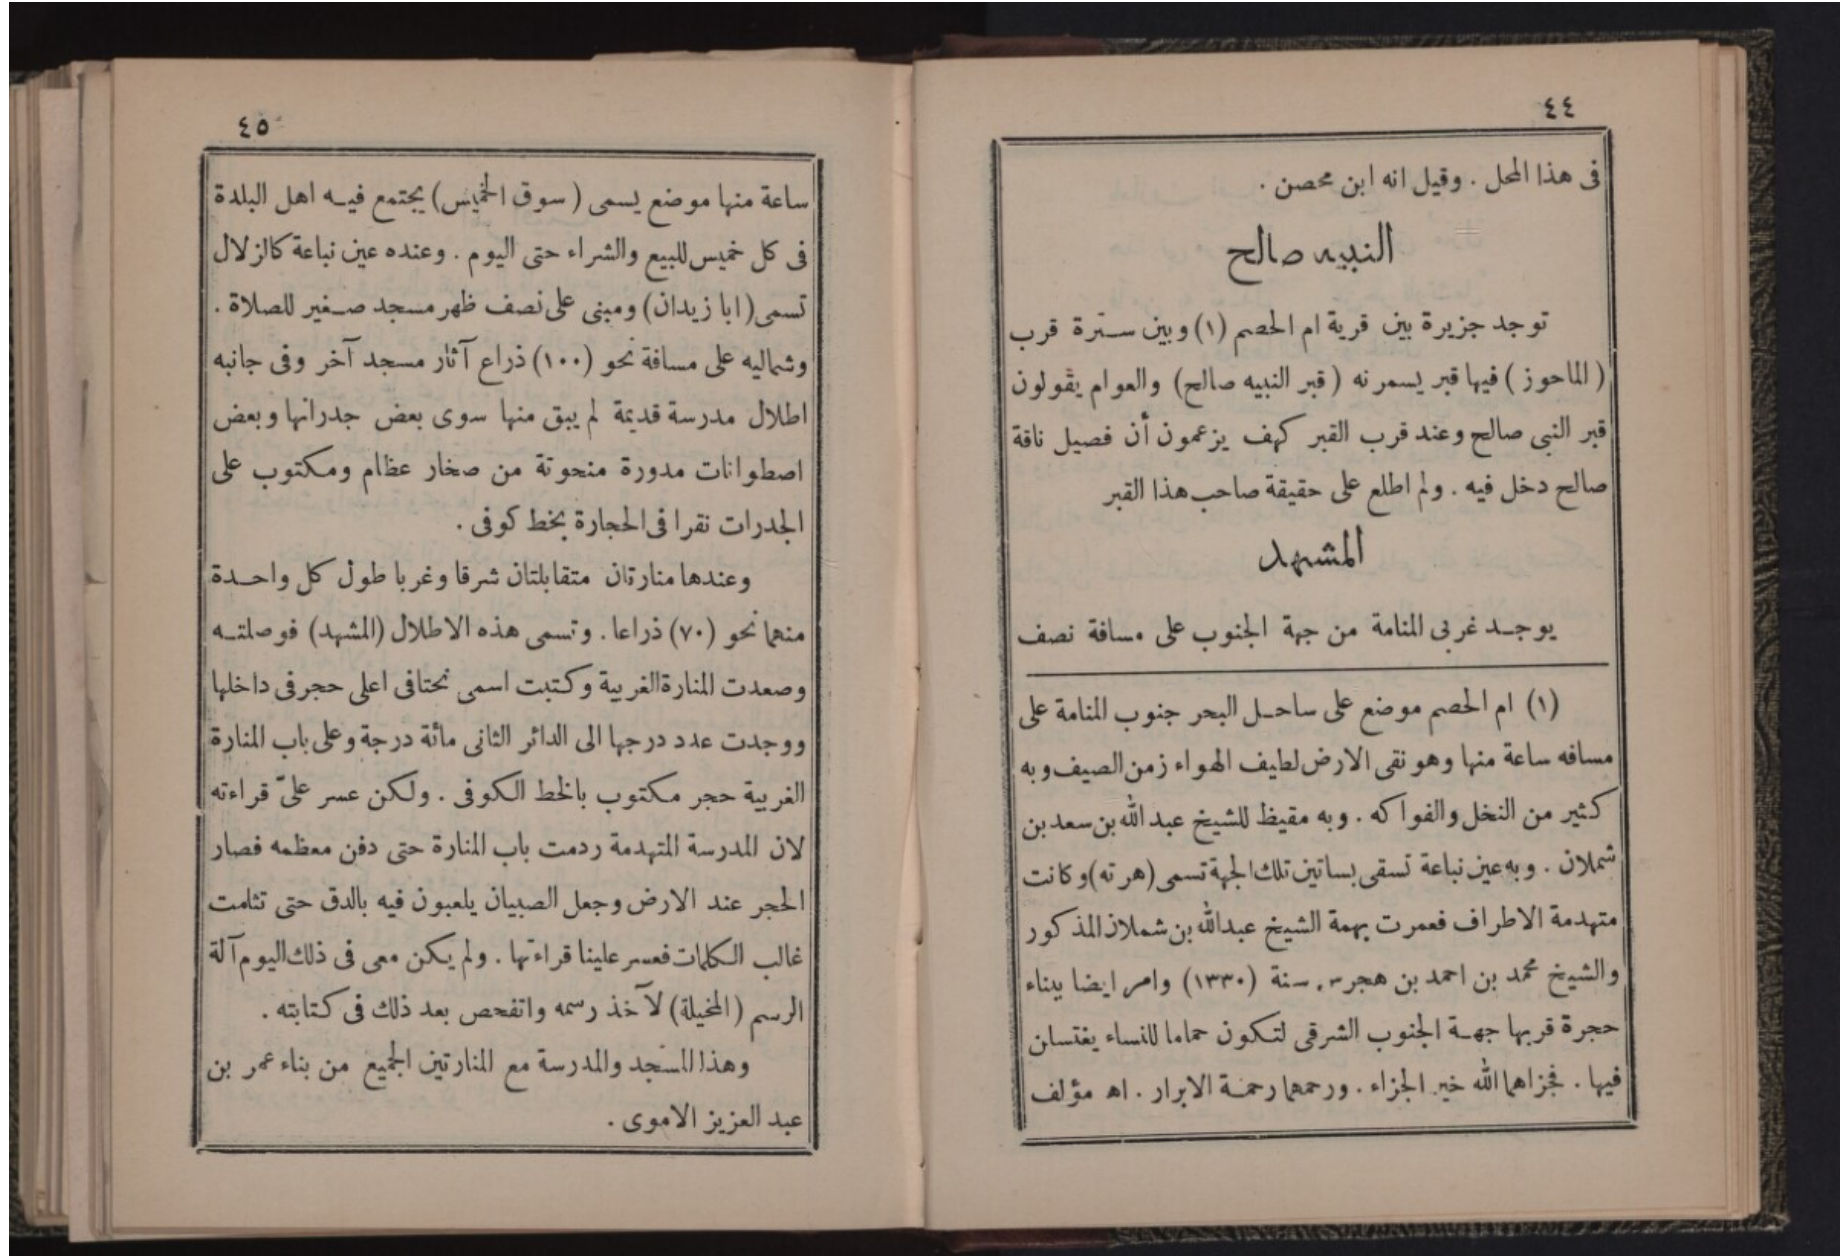 ٤٤
فى هذا المحل . وقيل انه ابن محصن .
النبيه صالح
توجد جزيرة بين قرية ام الحصم (١) وبين سـترة قرب
( الماحوز ) فيها قبر يسمرنه ( قبر النبيه صالح ) والعوام يقولون
قبر النبى صالح وعند قرب القبر كهف يزعمون أن فصيل ناقة
صالح دخل فيه . ولم اطلع على حقيقة صاحب هذا القبر
المشهد
يوجـد غربى المنامة من جهة الجنوب على مسافة نصف
(١) ام الحصم موضع على ساحـل البحر جنوب المنامة على
مسافه ساعة منها وهو نقى الارض لطيف الهواء زمن الصيف وبه
كثير من النخل والفواكه . وبه مقيظ للشيخ عبد الله بن سعد بن
شملان . وبه عين نباعة تسقى بساتين تلك الجهة تسمى (هرته) وكانت
متهدمة الاطراف فعمرت بهمة الشيخ عبدالله بن شملان المذكور
والشيخ محمد بن احمد بن هجرس . سنة (١٣٣٠) وامر ايضا ببناء
حجرة قربها جهـة الجنوب الشرقى لتـكون حماما للنساء يغتسلن
فيها . فجزاهما الله خير الجزاء . ورحمهما رحمـة الابرار . اه مؤلف
٤٥
ساعة منها موضع يسمى ( سوق الخميس) يجتمع فيـه اهل البلدة
فى كل خميس للبيع والشراء حتى اليوم . وعنده عين نباعة كالزلال
تسمى ( ابا زيدان) ومبنى على نصف ظهر مسجد صـغير للصلاة .
وشماليه على مسافة نحو (١٠٠) ذراع آثار مسجد آخر وفى جانبه
اطلال مدرسة قديمة لم يبق منها سوى بعض جدرانها وبعض
اصطوانات مدورة منحوتة من صخار عظام ومكتوب على
الجدرات نقرا فى الحجارة بخط كوفى .
وعندها منارتان متقابلتان شرقا وغربا طول كل واحـدة
منهما نحو (٧٠) ذراعا . وتسمى هذه الاطلال (المشهد) فوصلتـه
وصعدت المنارة الغربية وكتبت اسمى نحتا فى اعلى حجر فى داخلها
ووجدت عدد درجها الى الدائر الثانى مائة درجة وعلى باب المنارة
الغربية حجر مكتوب بالخط الـكوفى . ولـكن عسر علىّ قراءته
لان المدرسة المتهدمة ردمت باب المنارة حتى دفن معظمه فصار
الحجر عند الارض وجعل الصبيان يلعبون فيه بالدق حتى تثلمت
غالب الـكلمات فعسر علينا قراءتها . ولم يـكن معى فى ذلك اليوم آلة
الرسم ( المخيلة ) لآخذ رسمه واتفحص بعد ذلك فى كـتابته .
وهذا المسجد والمدرسة مع المنارتين الجميع من بناء عمر بن
عبد العزيز الاموى .